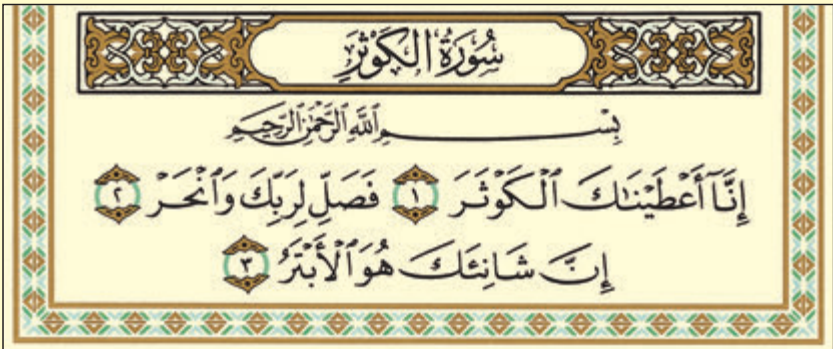 سُورَةُ الْكَوْثَرِ
بِسْمِ ٱللَّهِ ٱلرَّحْمَٰنِ ٱلرَّحِيمِ
إِنَّآ أَعْطَيْنَٰكَ ٱلْكَوْثَرَ ١ فَصَلِّ لِرَبِّكَ وَٱنْحَرْ ٢
إِنَّ شَانِئَكَ هُوَ ٱلْأَبْتَرُ ٣